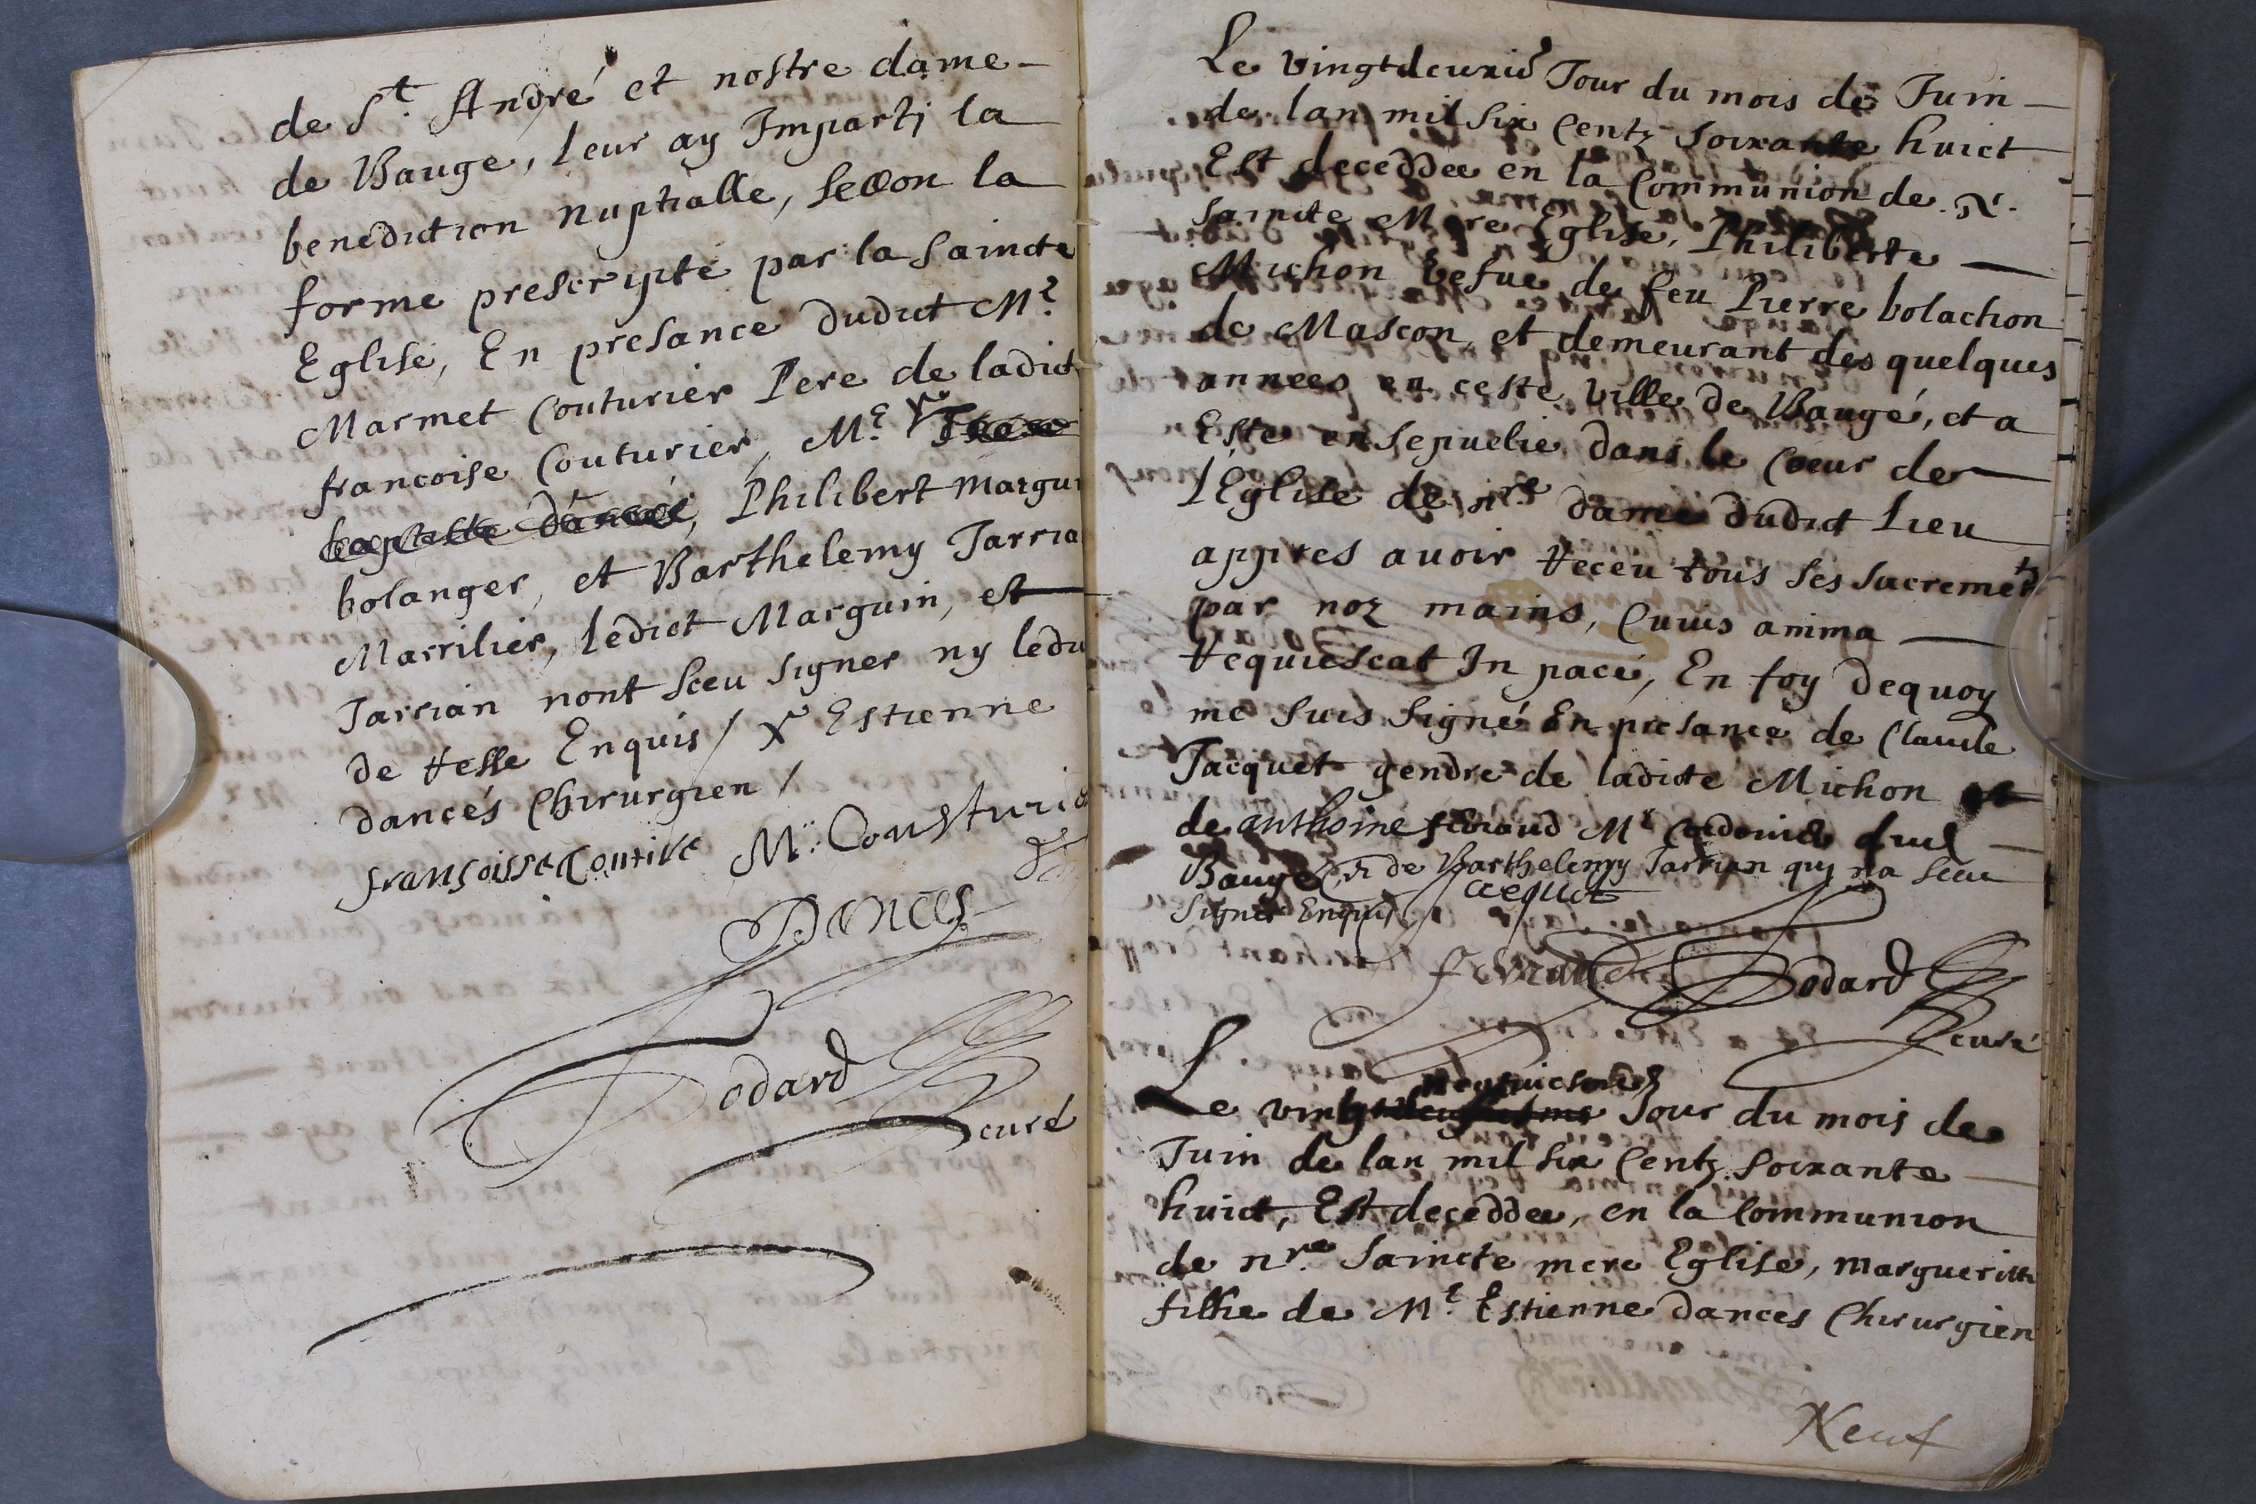 de St. André et nostre dame
de Bauge, leur ay Imparti la
benediction nuptialle, sellon la
forme prescripte par la saincte
Eglise, En presance dudict Me.
Marmet Couturier Pere de ladict
francoise Couturier, Me.
Philibert Margui
bolanger, et Barthelemy Jarria
Marrilier, ledict Marguin, est
Jarrian nont sceu signer ny ledu
de tesse Enquis / Estienne
dancés Chirurgien /
M. Cousturie
Dances
Bodard
curé
Le vingtdeuxie Jour du mois de Juin
de lan mil six Centz soixante huict
Est deceddee en la Communion de N.
saincte Mere Eglise, Philiberte
Michon vefue de feu Pierre bolachon
de Mascon, et demeurant des quelques
annees en ceste ville de Baugé, et a
Este ensepuelie dans le Coeur de
l'Eglise de nre dame dudict Lieu
appres avoir receu tous ses sacremets
par noz mains, Cuius anima
requiescat In pace, En foy dequoy
me suis signé En presance de Claude
Jacquet gendre de ladicte Michon et
de anthoine feraud Me Cordonier dud
Bauge, et de Barthelemy Jarrian quy na sceu
signer Enquis
Jacquet
Bodard
curé
Le vingt Jour du mois de
Juin de lan mil six Centz soixante
huict, Est deceddee, en la Communion
de nre. saincte mere Eglise, margueritte
fillie de Me. Estienne dances Chirurgien
Neuf